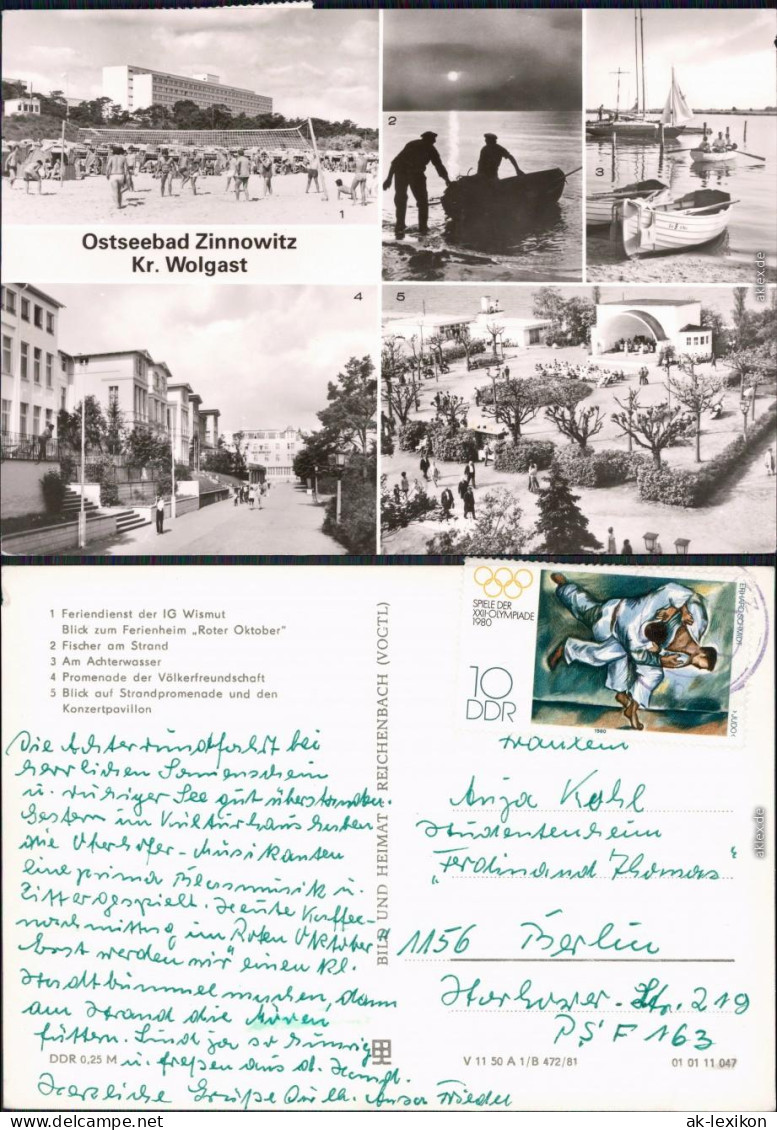 Ostseebad Zinnowitz
Kr. Wolgast
1
2
3
4
5
1 Feriendienst der IG Wismut
Blick zum Ferienheim „Roter Oktober"
2 Fischer am Strand
3 Am Achterwasser
4 Promenade der Völkerfreundschaft
5 Blick auf Strandpromenade und den
Konzertpavillon
Die Achterrundfahrt bei
herrlichen Sonnenschein
u. ruhiger See gut überstanden.
Gestern im Kulturhaus haben
die Oberhofer-Musikanten
eine prima Blasmusik u.
Zitter gespielt. Heute Kaffee-
nachmittag im Roten Oktober"
werden wir einen kl.
Stadtbummel machen, dann
am Strand die Möven
füttern. Sind ja so hungrig
u. fressen aus d. Hand.
Herzliche Grüße
DDR 0,25 M
BILD UND HEIMAT REICHENBACH (VOGTL)
SPIELE DER
XXII.OLYMPIADE
1980
10
DDR
1980
JUDO
Fräulein
Anja Kohl
Studentenheim
„Ferdinand Thomas"
1156 Berlin
Storkower Str. 219
PSF 163
V 11 50 A 1/B 472/81
01 01 11 047
aklex.de
aklex.de
ak-lexikon